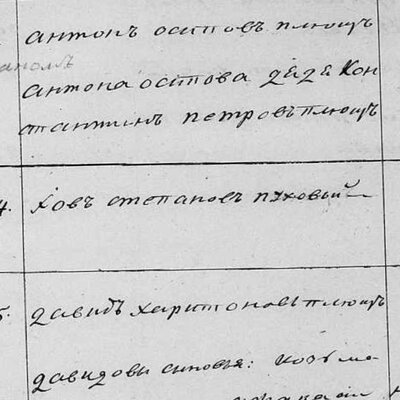 антонъ осиповъ плющъ
антона осипова дядя Кон
стантинъ петровъ плющъ
4. ховъ степановъ пуховый
5. давидъ харитоновъ плющъ
давидовы сыновья: козьма